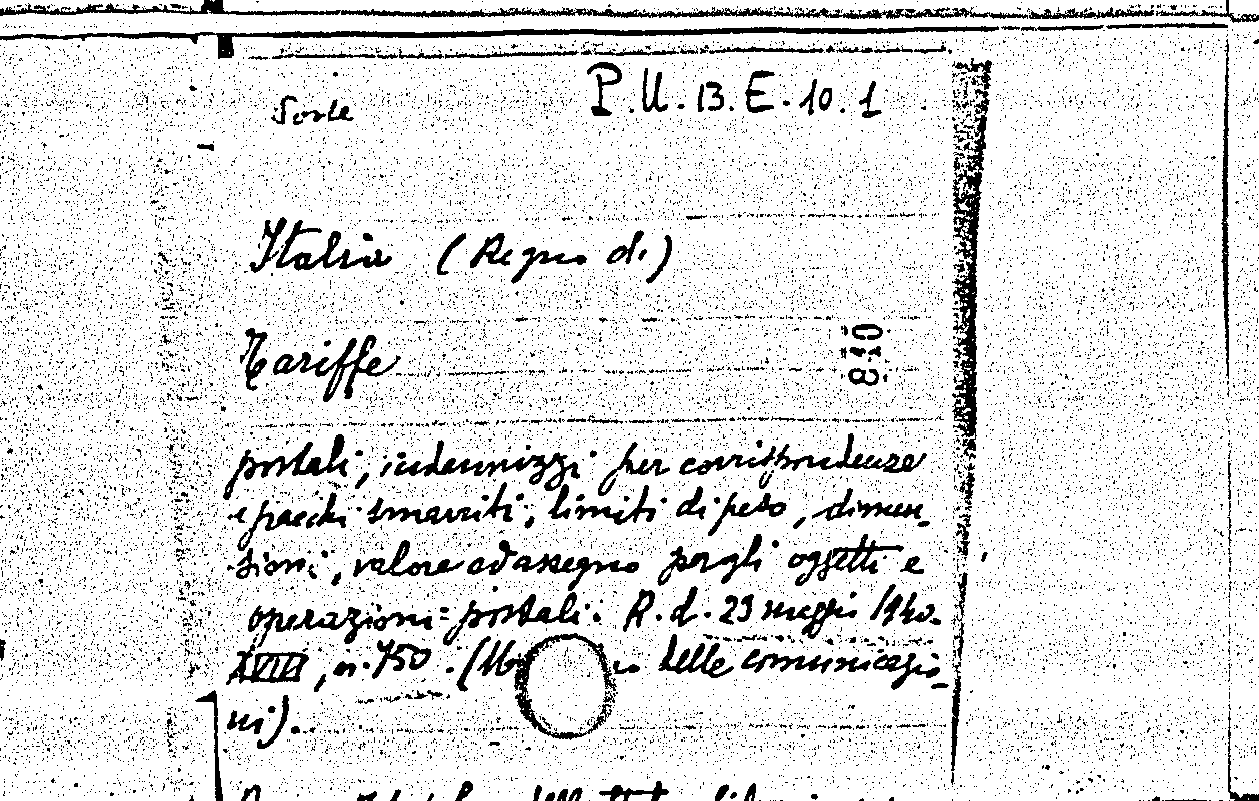 P.U. 13. E. 10. 1
Italia (Regno di)
Tariffe
810
postali, indennizzi per corrispondenze
e pacchi smarriti, limiti di peso, dimen-
sioni, valore ed assegno per gli oggetti e
operazioni postali. R. d. 23 maggio 1940-
XVIII, n. 750. (M delle comunicazio-
ni).